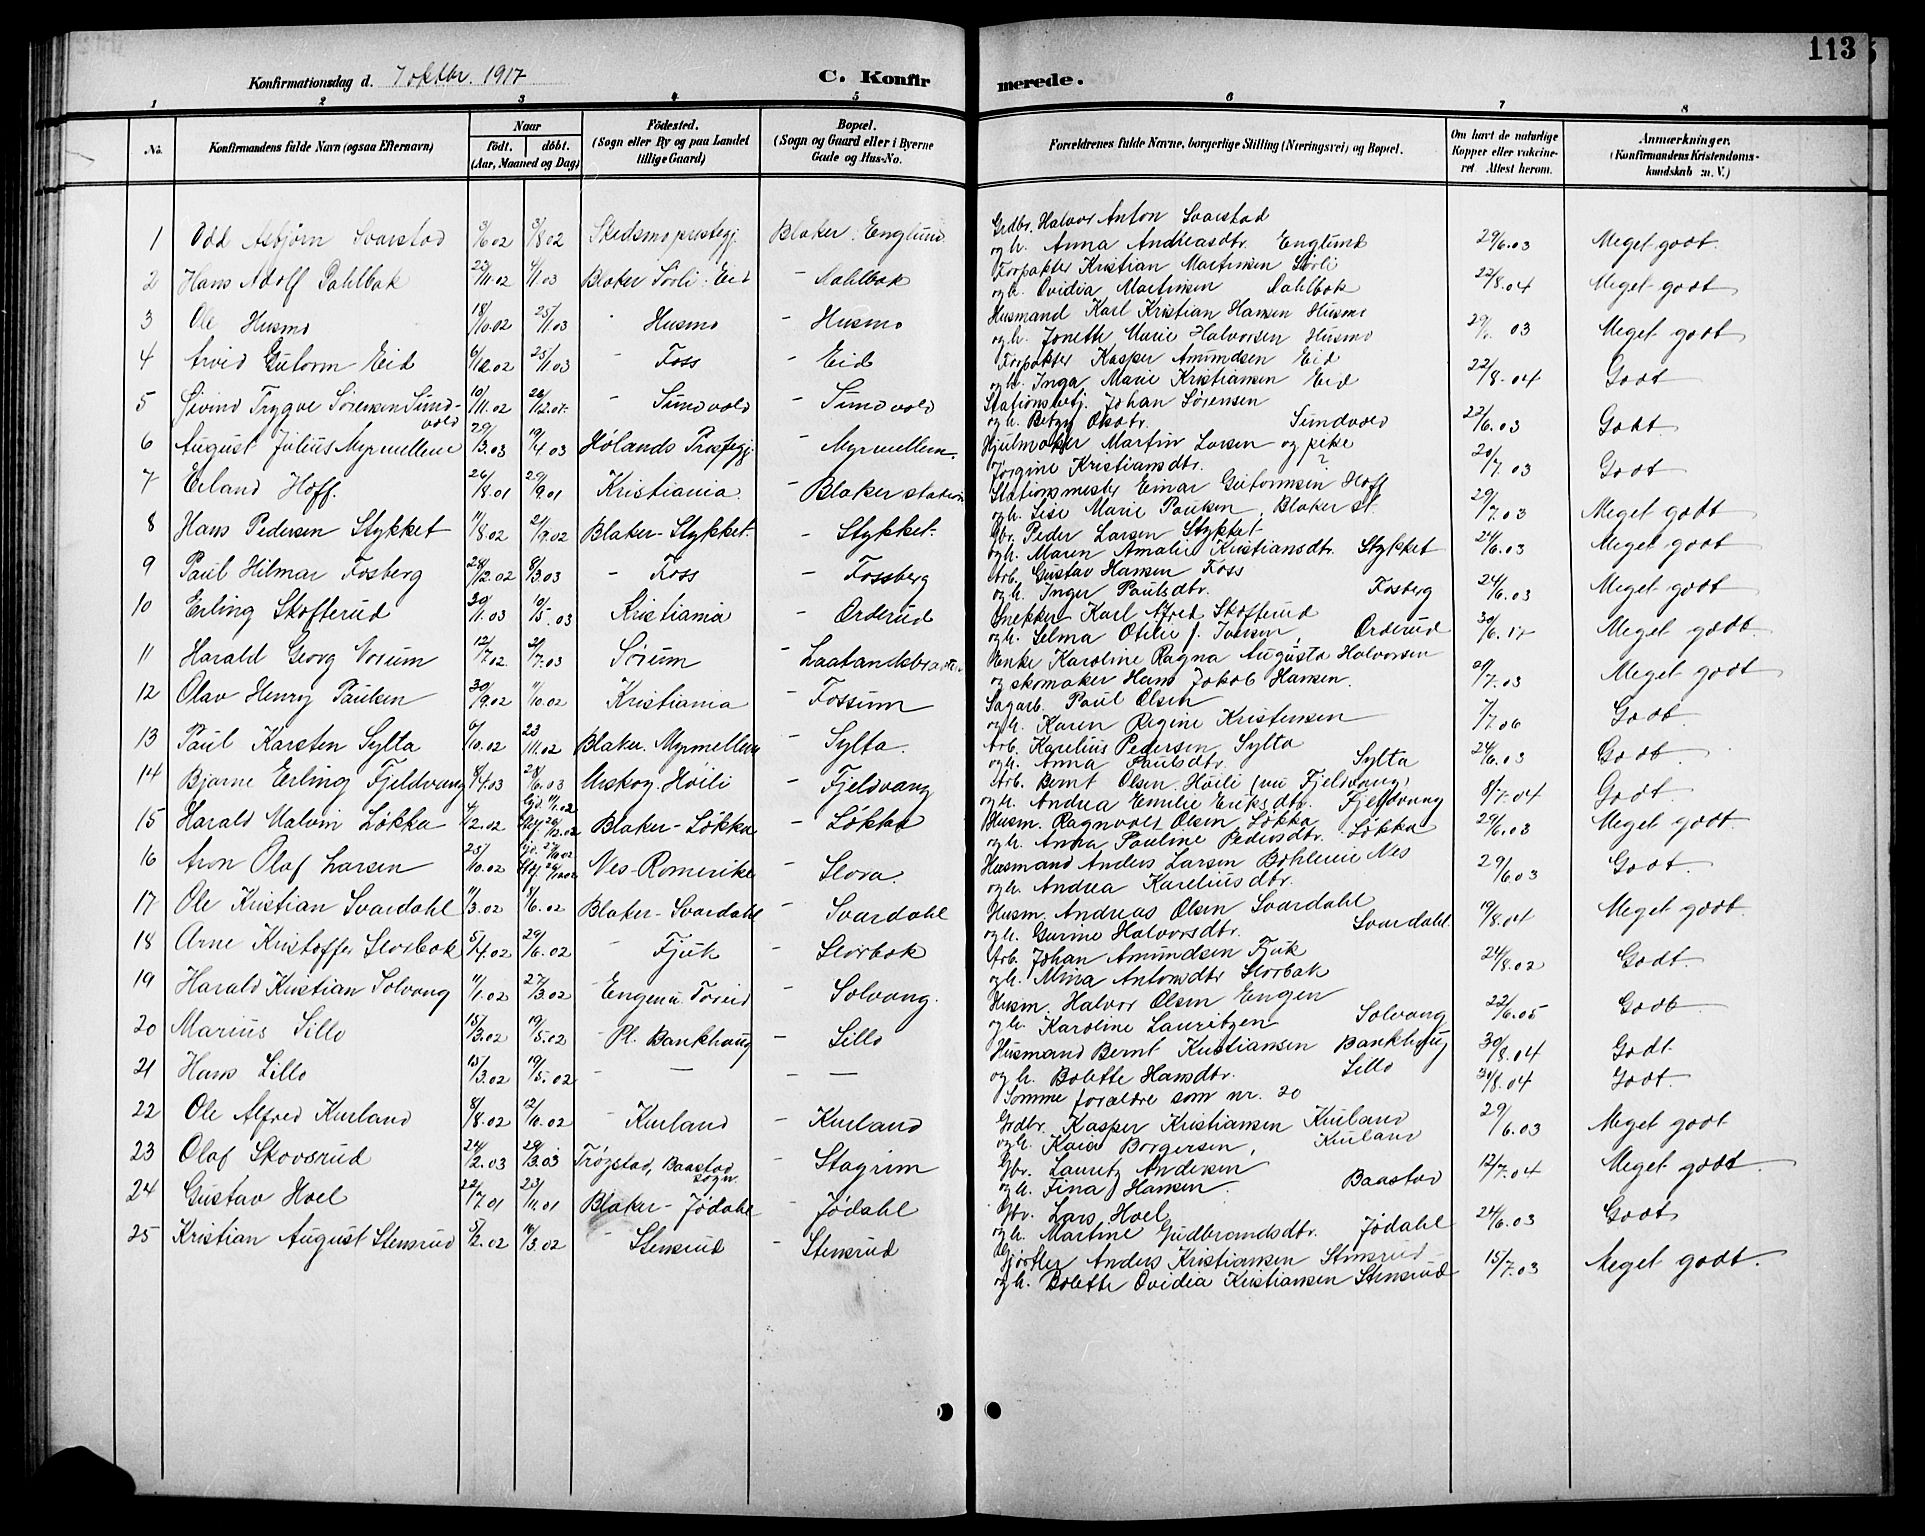 113
Konfirmationsdag d. 7 oktbr. 1917
C. Konfirmerede.
1 2 3 4 5 6 7 8
No.
Konfirmandens fulde Navn (ogsaa Efternavn)
Naar
födt. döbt.
(Aar, Maaned og Dag)
Födested.
(Sogn eller By og paa Landet
tillige Gaard)
Bopæl.
(Sogn og Gaard eller i Byerne
Gade og Hus-No.
Forældrenes fulde Navne, borgerlige Stilling (Næringsvei) og Bopæl.
Om havt de naturlige
Kopper eller vakcine-
ret Attest herom.
Anmærkninger.
(Konfirmandens Kristendoms-
kundskab m. V.)
1 Odd Asbjørn Svarstad 3/6 02 3/8 02 Skedsmo prestegj. Blaker: Englund Grdbr. Halvor Anton Svarstad
og h. Anna Andreasdtr. Englund 29/6.03 Meget godt.
2 Hans Adolf Dahlbak 23/11.02 4/1 03 Blaker Sörli: Eid - Dahlbak Forpakter Kristian Martinsen Sörli
og h. Ovidia Martinsen Dahlbak 22/8.04 Meget godt
3 Ole Husmo 18/10.02 25/1 03 " Husmo - Husmo Husmand Karl Kristian Hansen Husmo
og h. Jonette Marie Halvorsen Husmo 29/ 03 Meget godt
4 Arvid Gutorm Eid 6/12 02 25/1 03 " Foss - Eid Forpakter Kasper Amundsen Eid
og h. Inga Marie Kristiansen Eid 22/8.04 Godt
5 Øivind Trygve Sørensen Sund-
vold 10/11.02 26/12.02 " Sundvold - Sundvold Stationsbetj. Johan Sørensen
og h. Betzy Olsdtr. Sundvold 22/6.03 Godt
6 August Julius Myrmellem 29/3.03 19/4 03 Hølands Prestegj. - Myrmellem Hjulmaker Martin Larsen og pike
Jørgine Kristiansdtr. ? 20/7.03 Godt
7 Erland Hoff. 26/8.01 29/9.01 Kristiania - Blaker station Stationsmester Einar Gutormsen Hoff
og h. Lise Marie Paulsen, Blaker st. 29/7.03 Meget godt
8 Hans Pedersen Stykket 11/8 02 21/9.02 Blaker-Stykket. - Stykket. Gbr. Peder Larsen Stykket
og h. Maren Amalie Kristiansdtr. Stykket 24/6.03 Meget godt
9 Paul Hilmar Fosberg 28/12.02 8/3.03 - Foss - Fossberg Arb. Gustav Hansen Foss
og h. Inger Paulsdtr. Fosberg 24/6.03 Meget godt
10 Erling Skofterud 20/1.03 10/5.03 Kristiania - Orderud Snekker Karl Alfred Skofterud
og h. Selma Otilie f. Iversen, Orderud 30/6.17 Meget godt.
11 Harald Georg Vorum 12/7 02. 2/7.03 Sørum - Laatandsbraaten Enke Karoline Ragna Augusta Halvorsen
og skomaker Hans Jakob Hansen. 21/7.03 Meget godt
12 Olav Henry Paulsen 30/9.02 11/10.02 Kristiania - Fossum Sagarb. Paul Olsen
og h. Karen Regine Kristensen 7/7.06 Godt.
13 Paul Karsten Sylta 6/10.02 23/11.02 Blaker. Myrmellem - Sylta. Arb. Karelius Pedersen Sylta
og h. Anna Paulsdtr. Sylta 24/6.03 Godt.
14 Bjarne Erling Fjeldvang 8/4.03 28/6.03 Urskog. Høili - Fjeldvang Arb. Bernt Olsen Høili (nu Fjeldvang)
og h. Andrea Emilie Eriksdtr. Fjeldvang 8/7.04 Godt.
15 Harald Malvin Løkka 4/2.02 Blaker-Løkka - Løkka Husm. Ragnvald Olsen Løkka
og h. Anna Pauline Pedersdtr. Løkka 29/6.03 Meget godt.
16 Aron Olaf Larsen 25/10.02 Nes-Romerike - Slora. Husmand Anders Larsen Nes
og h. Andrea Kareliusdtr. 29/6 03 Godt.
17 Ole Kristian Svardahl 11/3.02 8/6.02 Blaker-Svardahl - Svardahl Husm. Andreas Olsen Svardahl
og h. Gurine Halvorsdtr. Svardahl 19/8.04 Meget godt.
18 Arne Kristoffer Slorbak 5/4.02 29/6.02 " Fjuk - Slorbak Arb. Johan Amundsen Fjuk
og h. Mina Antonsdtr Slorbak 24/8.02 Godt.
19 Harald Kristian Solvang 11/1.02 27/3.02 - Engen u. Toreid - Solvang. Husm. Halvor Olsen Engen
og h. Karoline Lauritzen Solvang 22/6.05 Godt.
20 Marius Lillo 15/3.02 19/5.02 - Pl. Bankhaug - Lillo Husmand Bernt Kristiansen Bankhaug
og h. Bolette Hansdtr. Lillo 30/8.04 Godt.
21 Hans Lillo 15/3.02 19/5.02 - — - — Samme forældre som nr. 20 30/8.04 Godt.
22 Ole Alfred Kurland 8/8.02 12/10.02 - Kurland - Kurland Grdbr. Kasper Kristiansen Kurland
og h. Kaia Borgersen, Kurland 29/6.03 Meget godt
23 Olaf Skovsrud 24/2.03 29/3.03 Trøgstad, Baastad
sogn. - Stagrim Gbr. Lauritz Andersen
og h. Tina Hansen. Baastad 12/7.04 Meget godt.
24 Gustav Hoel 22/7.01 23/11.01 Blaker-Jødahl - Jødahl Gbr. Lars Hoel
og h. Martine Gudbrandsdtr. Jødahl 24/6.03 Godt
25 Kristian August Stensrud 5/2.02 16/3.02 " Stensrud - Stensrud Gjørtler Anders Kristiansen Stensrud
og h. Bolette Ovidia Kristiansen Stensrud 15/7.03 Meget godt.